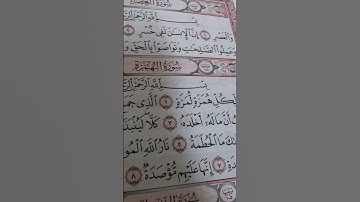 سُورَةُ العَصْرِ
بِسْمِ اللَّهِ الرَّحْمَٰنِ
وَالْعَصْرِ ١ إِنَّ الْإِنسَانَ لَفِي خُسْرٍ ٢
وَعَمِلُوا الصَّالِحَاتِ وَتَوَاصَوْا بِالْحَقِّ
سُورَةُ الهُمَزَةِ
بِسْمِ اللَّهِ الرَّحْمَٰنِ
لِّكُلِّ هُمَزَةٍ لُّمَزَةٍ ١ الَّذِي جَمَعَ
أَنَّ مَالَهُ أَخْلَدَهُ ٣ كَلَّا لَيُنبَذَنَّ
مَا الْحُطَمَةُ ٥ نَارُ اللَّهِ
٧ إِنَّهَا عَلَيْهِم مُّؤْصَدَةٌ ٨
سُورَةُ